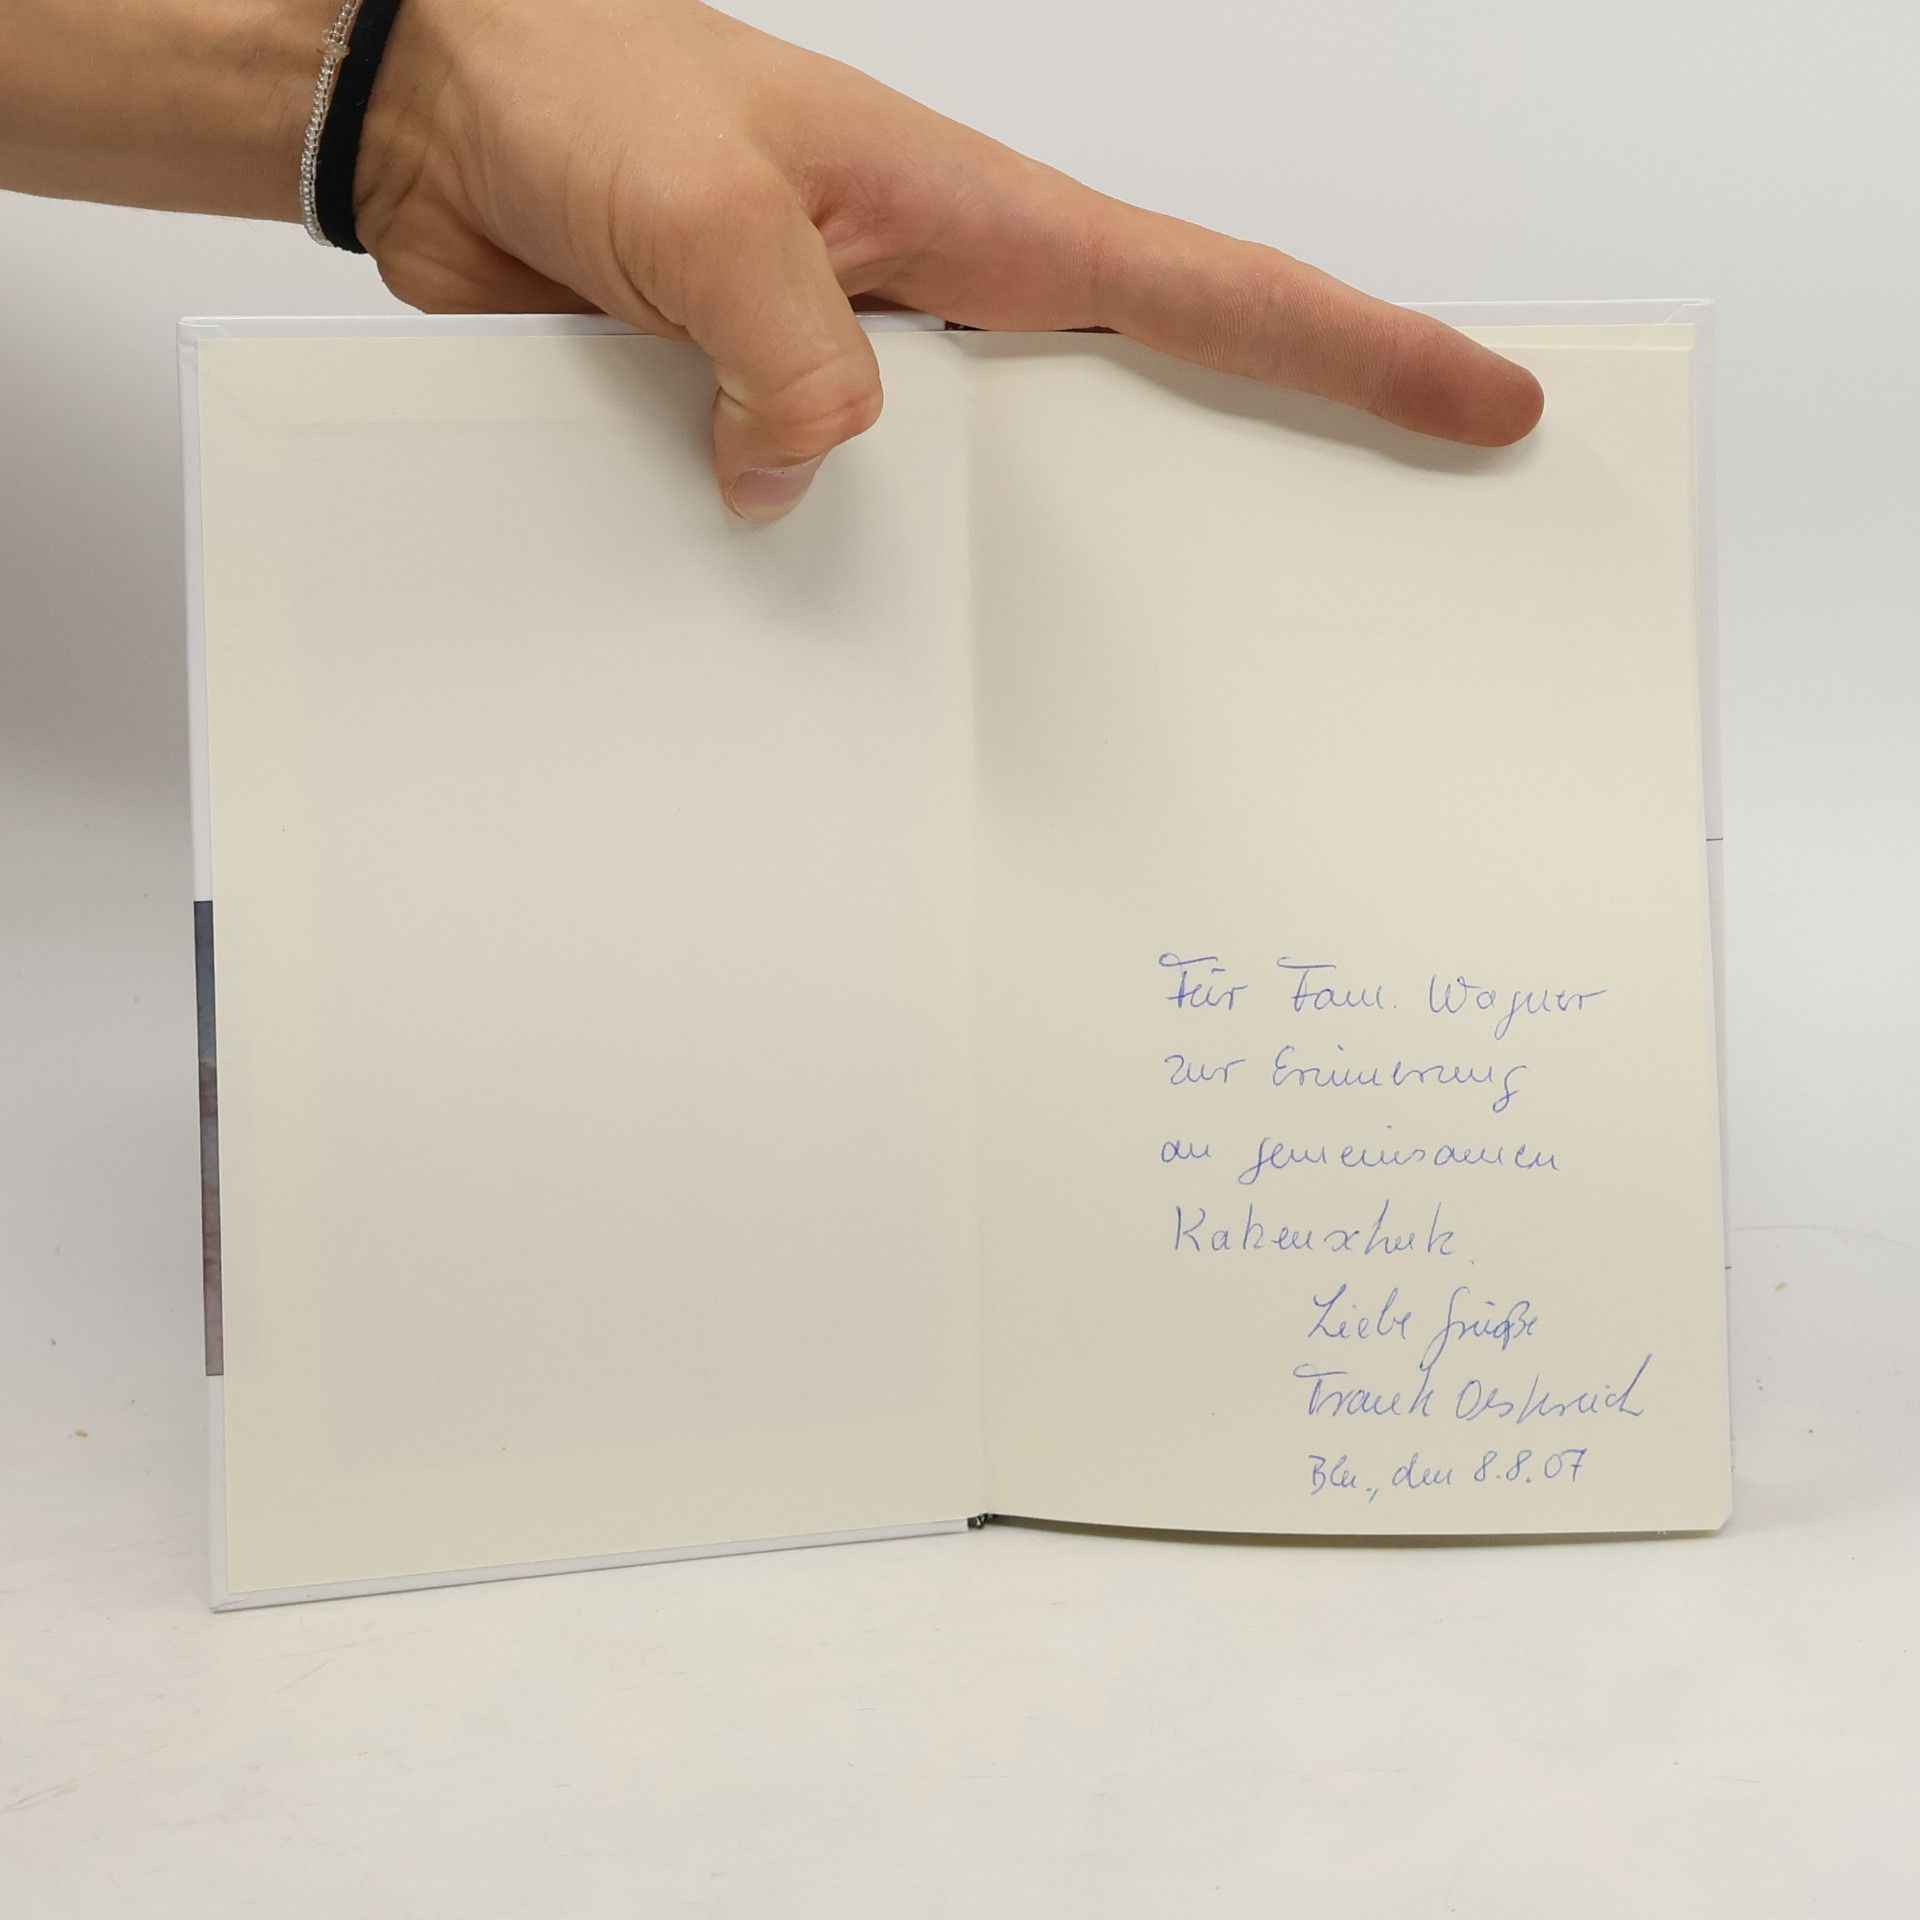 Für Fam. Wagner
zur Erinnerung
an gemeinsamen
Katzenschutz.
Liebe Grüße
Frank Oestreich
Bln., den 8.8.07